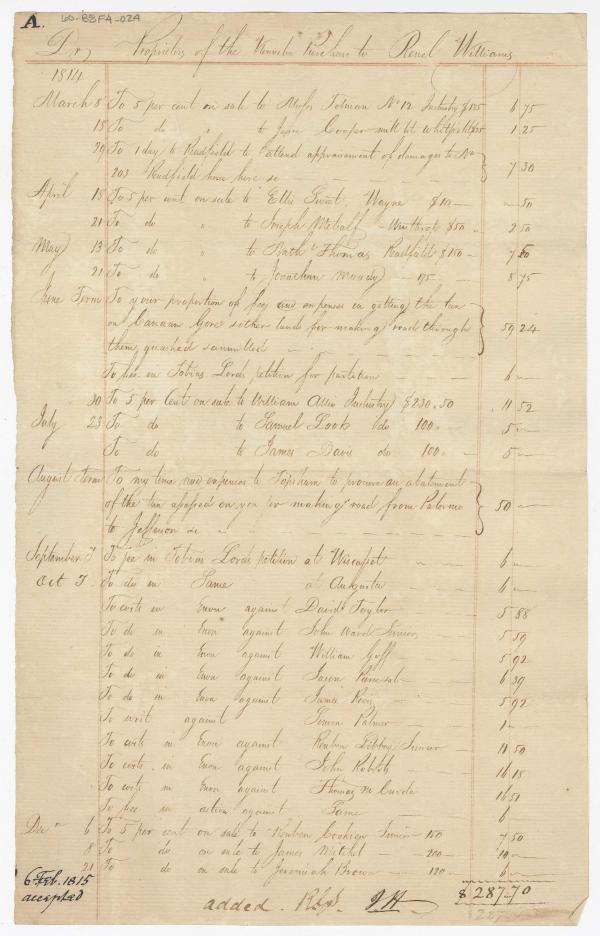 A. 60-88F4-024
Dr. Proprietors of the Kennebec Purchase to Reuel Williams
1814
March 8 To 5 per cent on sale to Moses Tolman No 12 Industry $135 6 75
18 To do " to Jesse Cooper mill lt Whitefield $25 1 25
29 To 1 day to Readfield to attend appraisement of damages to No
203 Readfield horse hire &c 7 30
April 15 To 5 per cent on sale to Ellis Sweet, Wayne $10 — " 50
21 To do " to Joseph Metcalf Winthrop $50 2 50
May 13 To do " to Nathl Thomas Readfield $150 7 50
21 To do " to Jonathan 175 8 75
June Term To your proportion of fees and expenses in getting the tax
on Canaan Gore & other lands for making road through
them, quashed 59 24
To fee on Tobias Lords petition for partition 6 —
30 To 5 per Cent on sale to William Allen Industry $230.50 11 52
July 23 To do to Samuel Look do 100 5 —
To do to James Davis do 100 5 —
August Term To my time and expenses to Topsham to procure an abatement
of the tax assessed on you for making road from Palermo
to Jefferson &c 50 —
September T To fee in Tobias Lords petition at Wiscasset 6 —
Oct T To do in Same at Augusta 6 —
To costs in Exon against David Taylor 5 88
To do in Exon against John Ward Junior 5 59
To do in Exon against William Goff 5 92
To do in Exon against Jason 6 39
To do in Exon against James 5 92
To writ against Simeon Palmer 1 —
To costs in Exon against Reuben Libbey Junior 11 50
To costs in Exon against John Roberts 16 18
To costs in Exon against Thomas McCurda 16 51
To fee in action against Same 6 —
Decr 6 To 5 per cent on sale to Reuben Junior 150 7 50
8 To do on sale to James Mitchel 200 10 —
21 To do on sale to Jeremiah Brown 120 6 —
6 Feb. 1815
accepted
added. $ 287.70